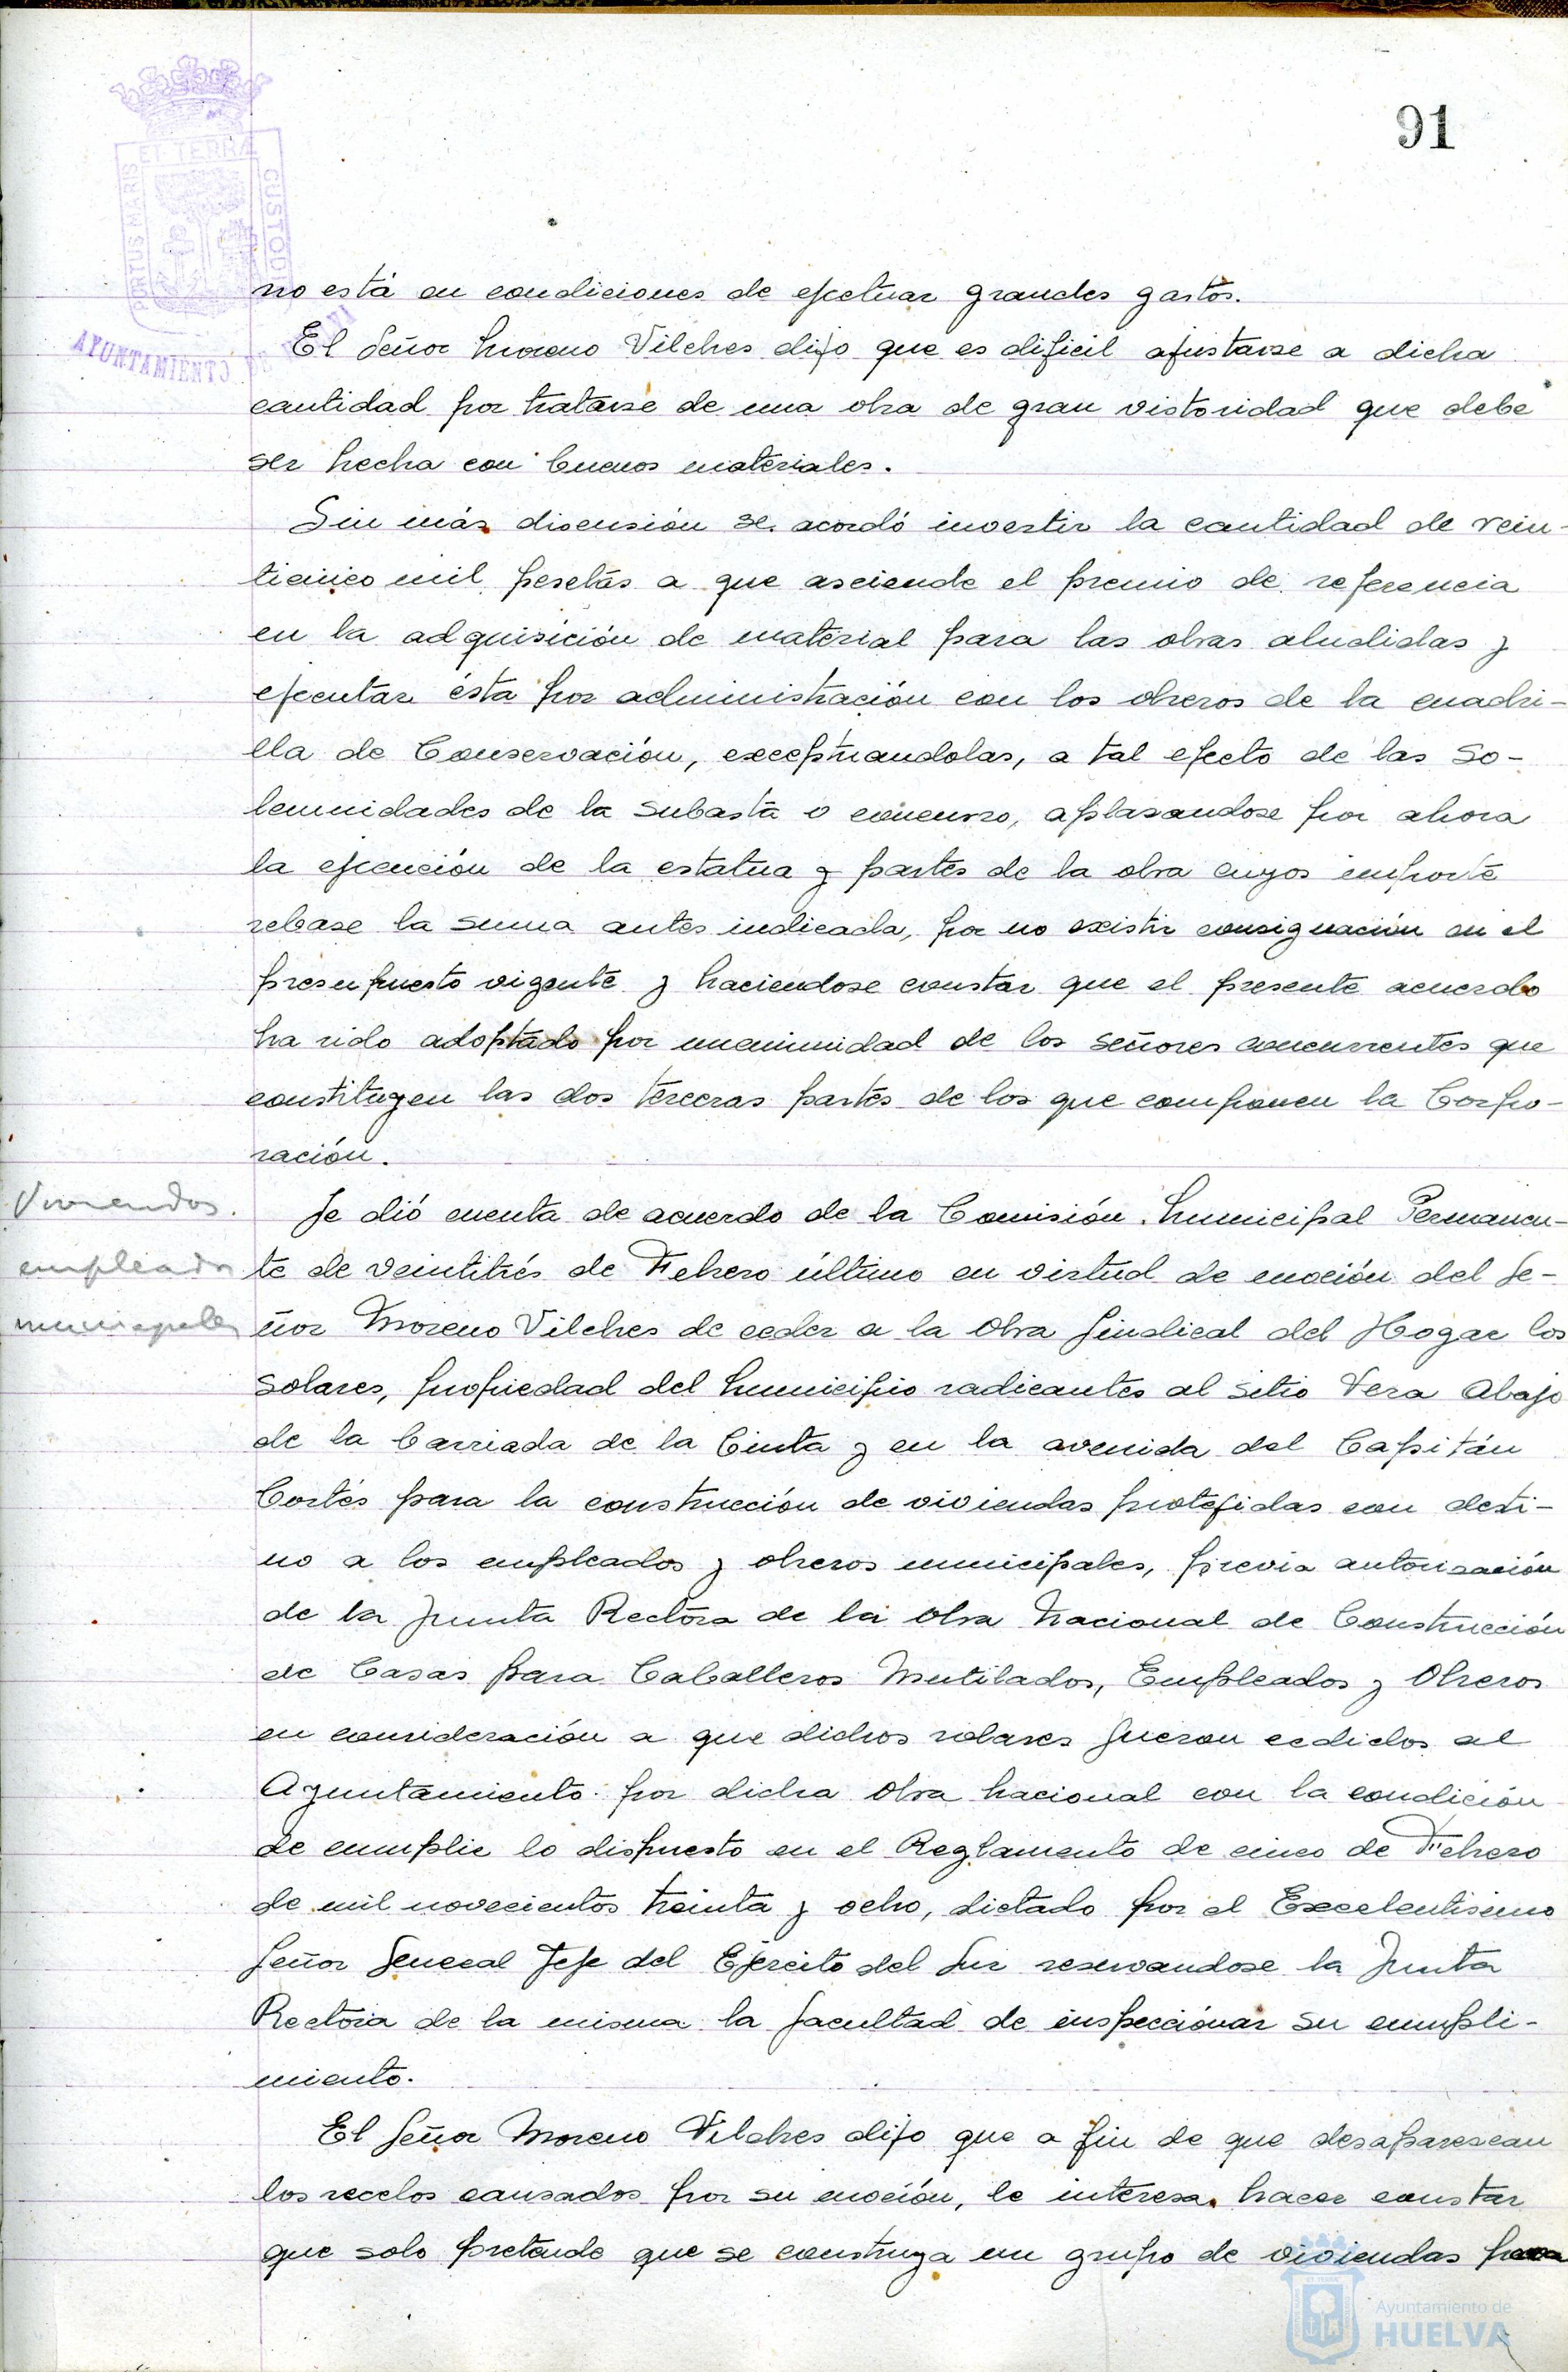 91
PORTUS MARIS ET TERRÆ CUSTODIA
AYUNTAMIENTO DE
no está en condiciones de efectuar grandes gastos.
El Señor Moreno Vilches dijo que es dificil ajustarse a dicha
cantidad por tratarse de una obra de gran vistosidad que debe
ser hecha con buenos materiales.
Sin más discusión se acordó invertir la cantidad de vein-
ticinco mil pesetas a que asciende el premio de referencia
en la adquisición de material para las obras aludidas y
ejecutar ésta por administración con los obreros de la cuadri-
lla de Conservación, exceptuandolas, a tal efecto de las so-
lemnidades de la subasta o concurso, aplasandose por ahora
la ejecución de la estatua y partes de la obra cuyos importe
rebase la suma antes indicada, por no existir consignación en el
presupuesto vigente y haciendose constar que el presente acuerdo
ha sido adoptado por unanimidad de los señores concurrentes que
constituyen las dos terceras partes de los que componen la Corpo-
ración.
Viviendas
empleados
municipales
Se dió cuenta de acuerdo de la Comisión Municipal Permanen-
te de veintitrés de Febrero último en virtud de moción del Se-
ñor Moreno Vilches de ceder a la Obra Sindical del Hogar los
solares, propiedad del Municipio radicantes al sitio Vera Abajo
de la barriada de la Cinta y en la avenida del Capitán
Cortés para la construcción de viviendas protegidas con desti-
no a los empleados y obreros municipales, previa autorización
de la Junta Rectora de la Obra Nacional de Construcción
de Casas para Caballeros Mutilados, Empleados y Obreros
en consideración a que dichos solares fueron cedidos al
Ayuntamiento por dicha Obra Nacional con la condición
de cumplir lo dispuesto en el Reglamento de cinco de Febrero
de mil novecientos treinta y ocho, dictado por el Excelentisimo
Señor General Jefe del Ejército del Sur reservandose la Junta
Rectora de la misma la facultad de inspecciónar su cumpli-
miento.
El Señor Moreno Vilches dijo que a fin de que desaparescan
los recelos causados por su moción, le interesa hacer constar
que solo pretende que se construya un grupo de viviendas para
Ayuntamiento de
HUELVA